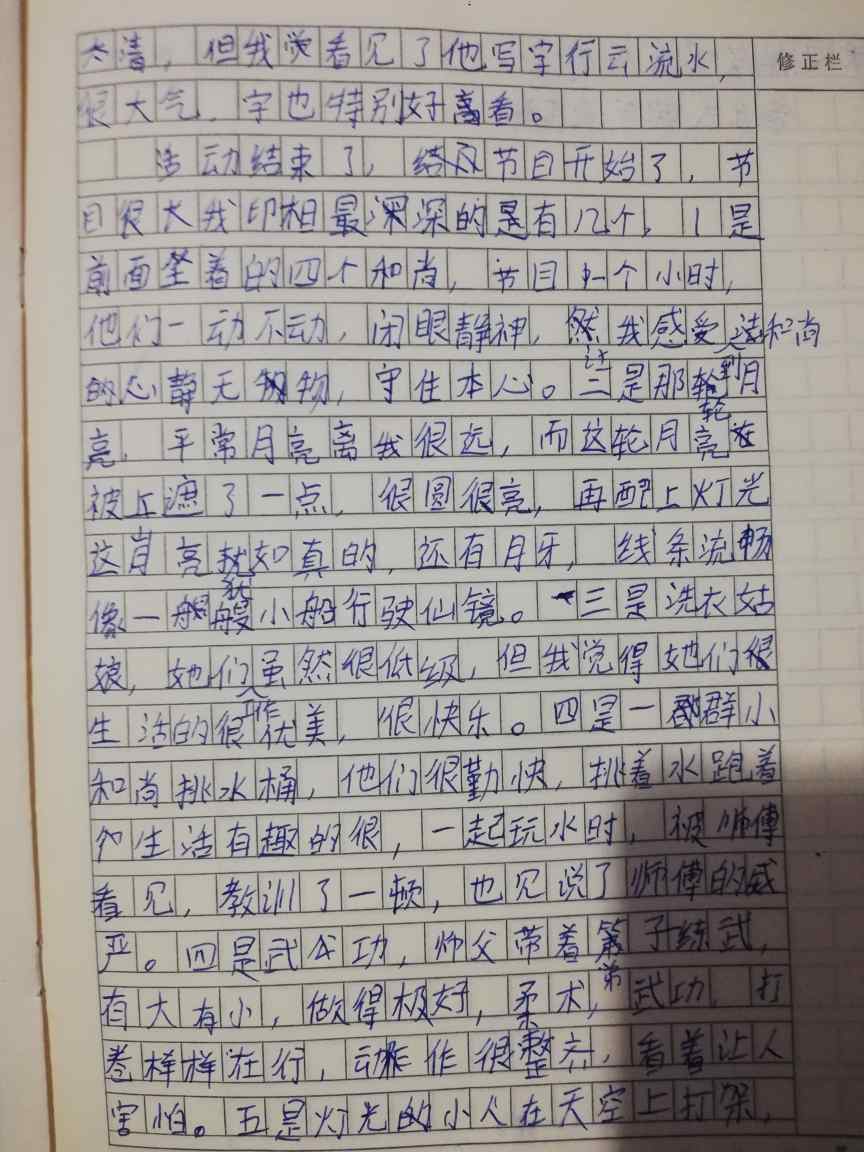 太清，但我觉看见了他写字行云流水，
修正栏
很大气，字也特别好看。
活动结束了，结及节目开始了，节
目很大我印相最深深的是有几个，1是
前面坐着的四个和尚，节目一个小时，
他们一动不动，闭眼静神，然我感受到这和尚
的心静无物物，守住本心。二是那轮月
亮，平常月亮离我很远，而这轮月亮在
被上遮了一点，很圆很亮，再配上灯光
这月亮就如真的，还有月牙，线条流畅
像一艘小船行驶仙镜。三是洗衣姑
娘，她们虽然很低级，但我觉得她们很
生活的很优美，很快乐。四是一群小
工作
和尚挑水桶，他们很勤快，挑着水跑着
生活有趣的很，一起玩水时，被师傅
看见，教训了一顿，也见说了师傅的威
严。四是武功，师父带着弟子练武，
有大有小，做得极好，柔术，武功，打
卷样样在行，动作很整齐，看着让人
害怕。五是灯光的小人在天空上打架，